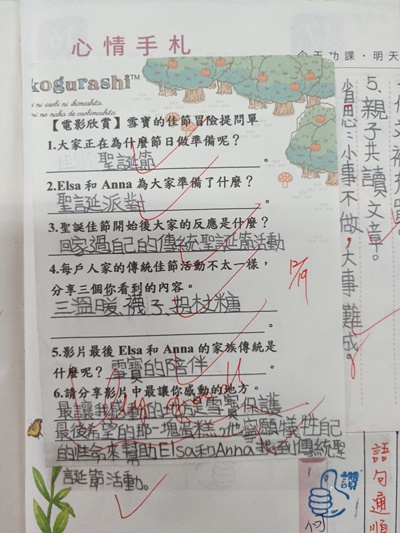 心情手札
今天功課·明天
kogurashi™
【電影欣賞】雪寶的佳節冒險提問單
1.大家正在為什麼節日做準備呢？
聖誕節。
2.Elsa 和 Anna 為大家準備了什麼？
聖誕派對。
3.聖誕佳節開始後大家的反應是什麼？
回家過自己的傳統聖誕節活動
4.每戶人家的傳統佳節活動不太一樣，
分享三個你看到的內容。
三溫暖、襪子、拐杖糖
。
5.影片最後 Elsa 和 Anna 的家族傳統是
什麼呢？雪寶的陪伴。
6.請分享影片中最讓你感動的地方。
最讓我感動的地方是雪寶保護
最後希望的那一塊蛋糕。他寧願犧牲自己
的性命來幫助Elsa和Anna找到傳統聖
誕節活動。
12/19
5.親子共讀文章。
省思：小事不做，大事難成。
語句通順
讚